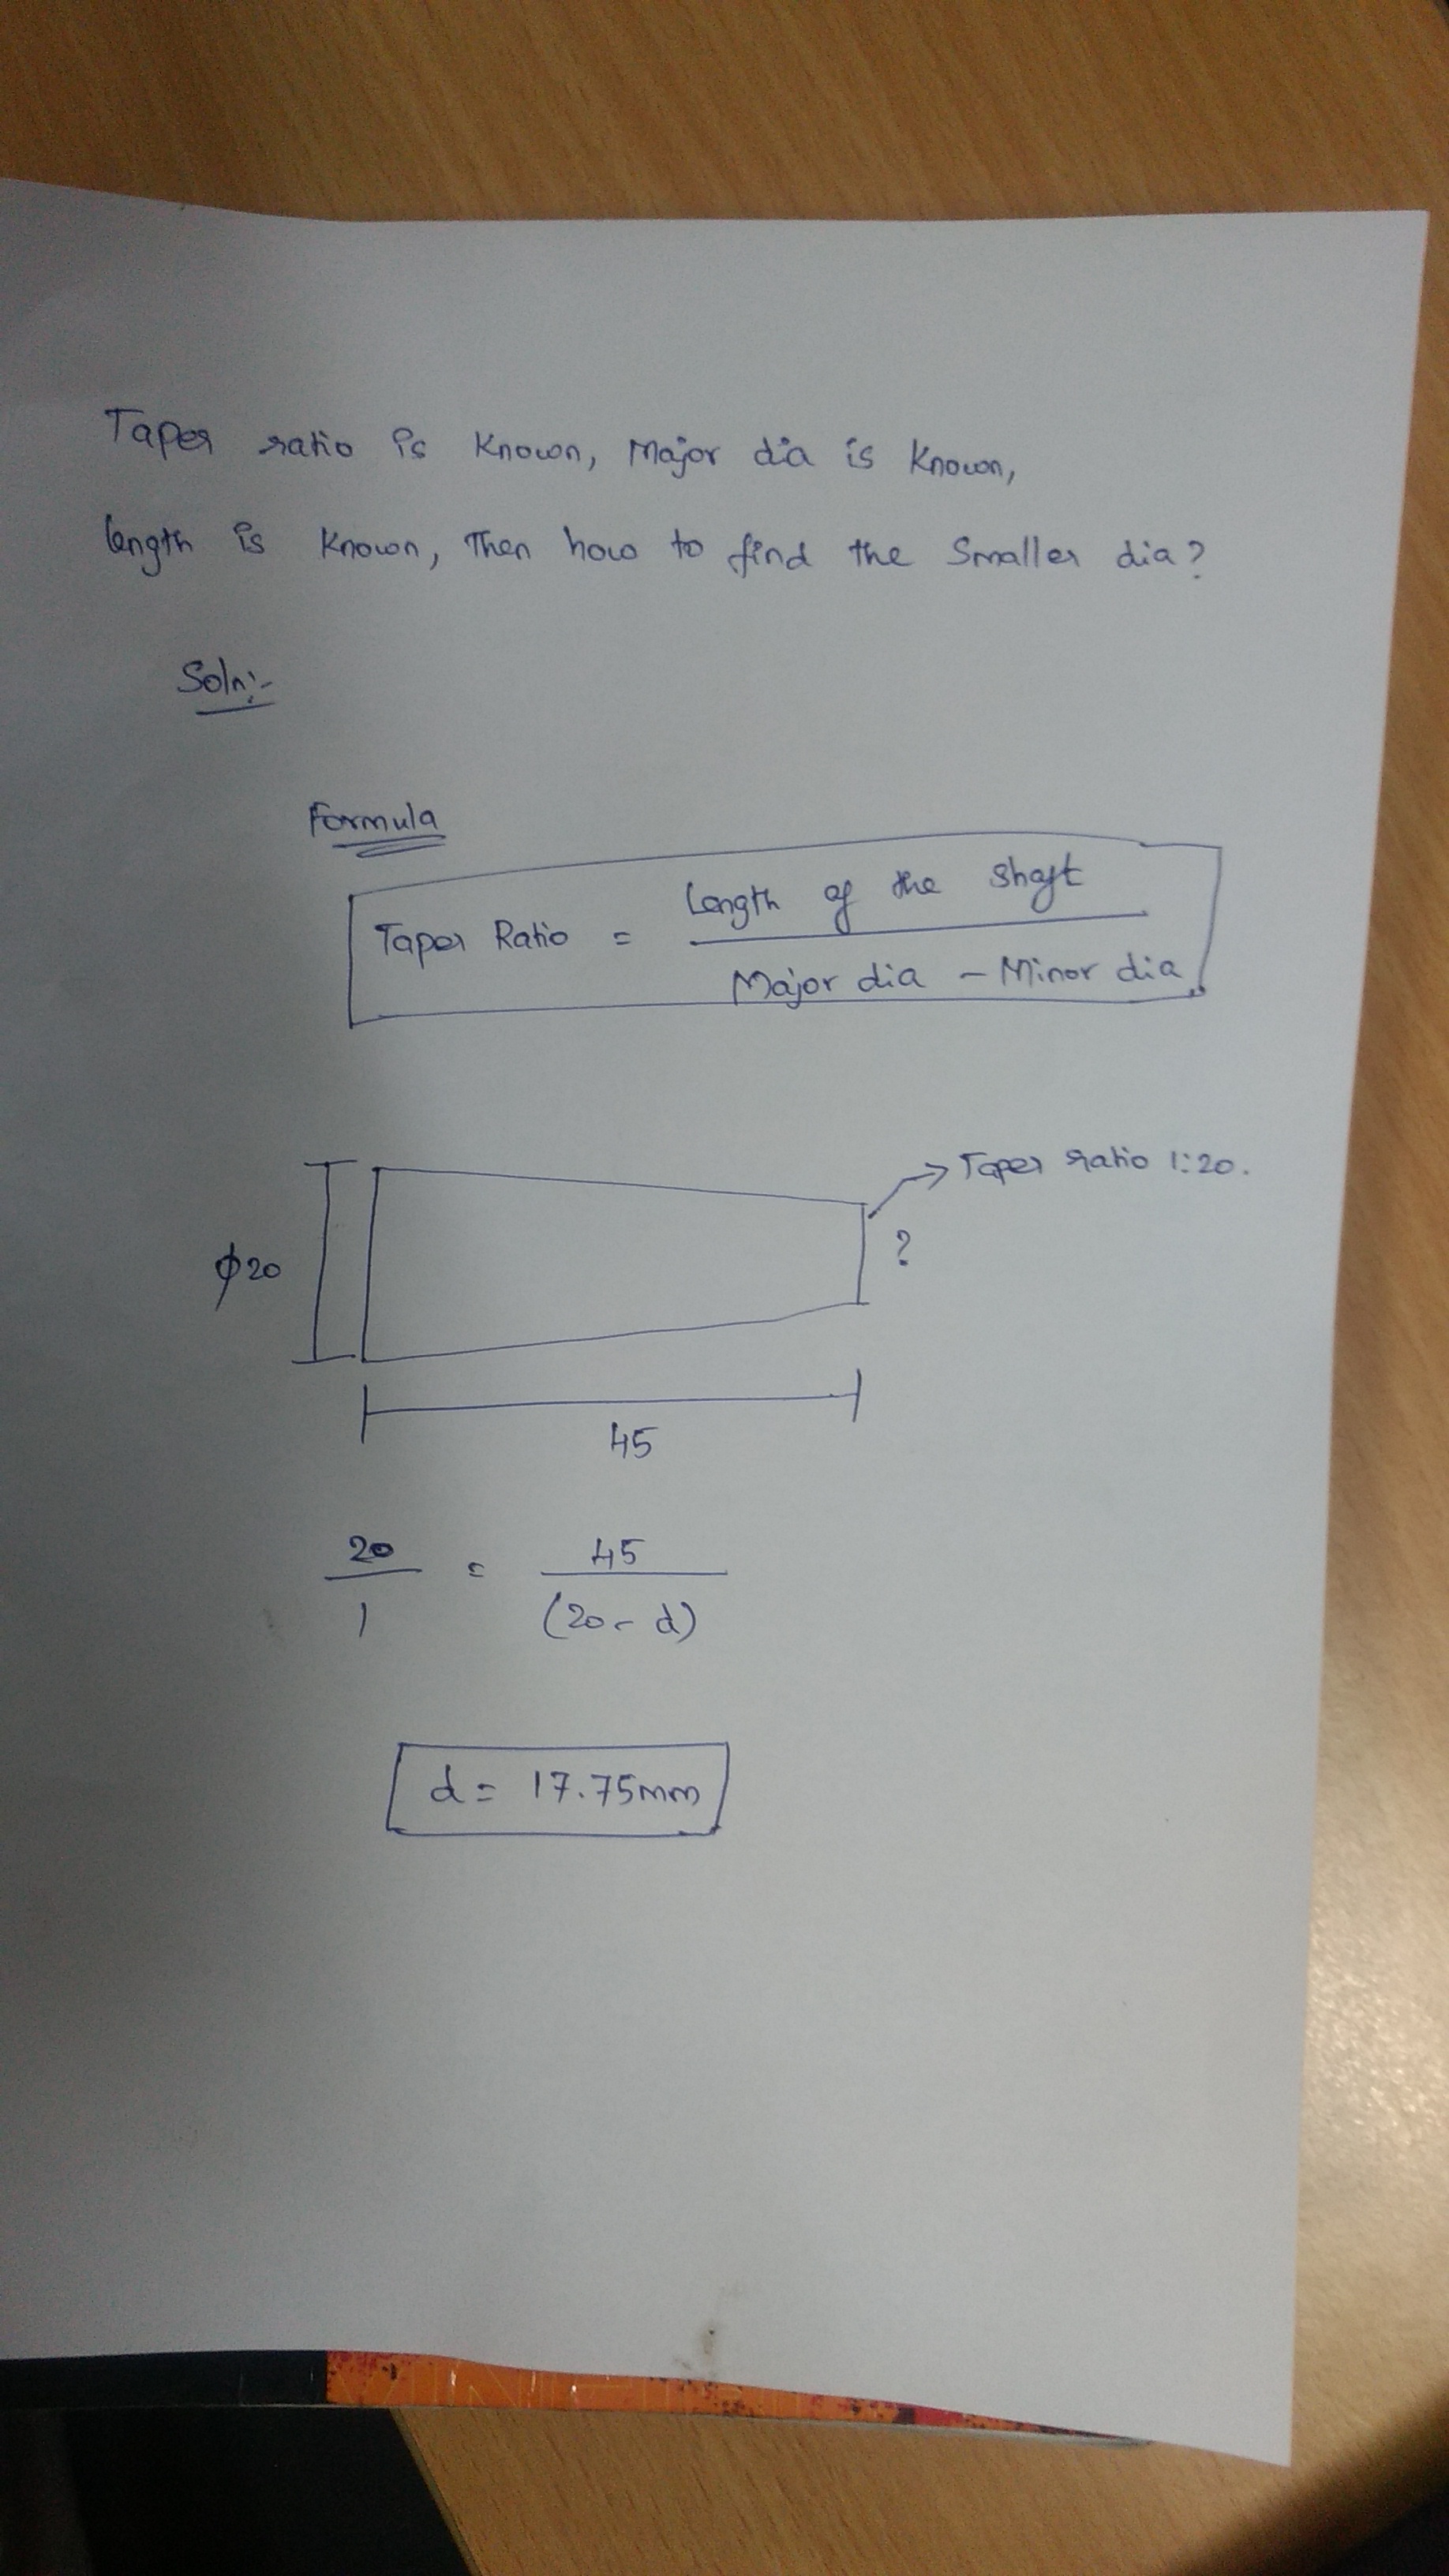 Taper ratio is Known, Major dia is Known,
length is Known, Then how to find the Smaller dia?
Soln:-
Formula
Taper Ratio = Length of the Shaft
Major dia - Minor dia
Taper ratio 1:20.
ϕ20
?
45
20 = 45
1 (20 - d)
d = 17.75mm